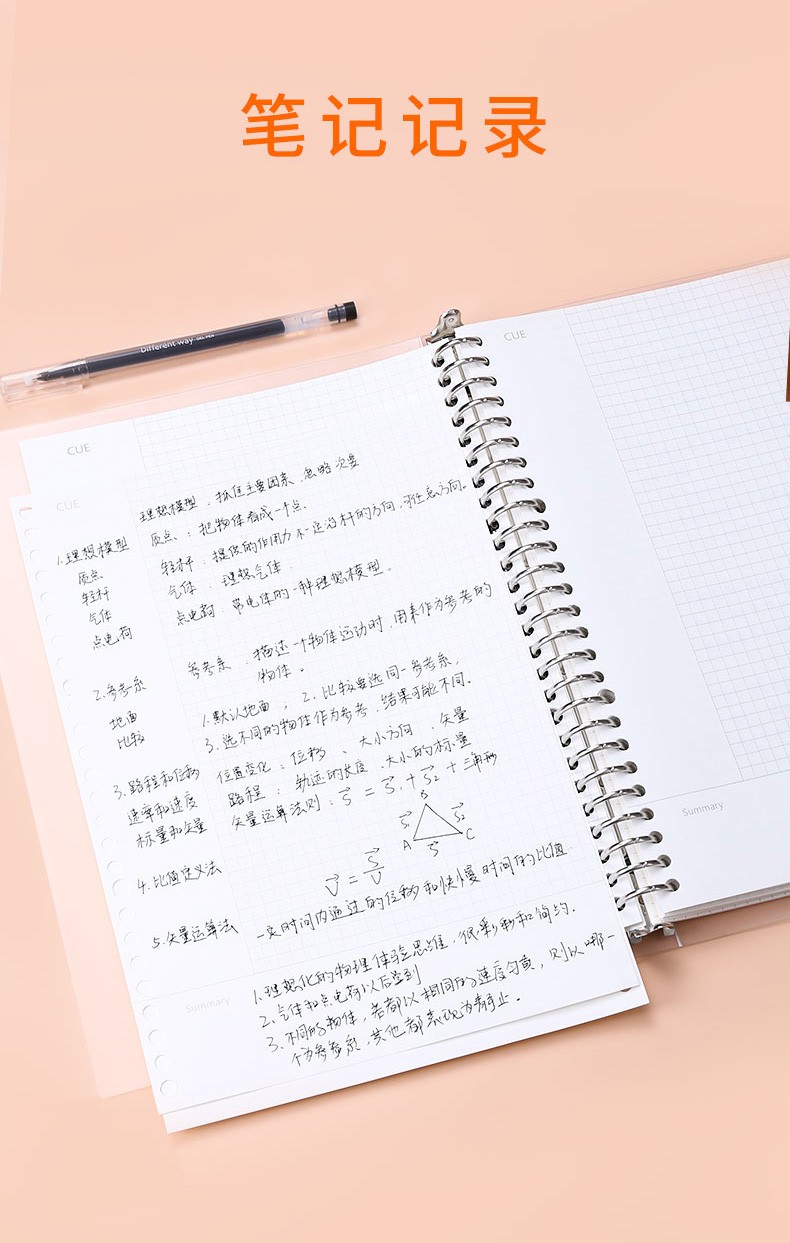 笔记记录
Different way GEL PEN
CUE
CUE
CUE
1.理想模型
质点
轻杆
气体
点电荷
2.参考系
地面
比较
3.路程和位移
速率和速度
标量和矢量
4.比值定义法
5.矢量运算法
理想模型,抓住主要因素,忽略次要
质点:把物体看成一个点.
轻杆:提供的作用力不一定沿杆的方向,可任意方向。
气体:理想气体.
点电荷:带电体的一种理想模型。
参考系:描述一个物体运动时,用来作为参考的
物体。
1.默认地面,2.比较要选同一参考系,
3.选不同的物体作为参考,结果可能不同.
位置变化:位移、大小方向、矢量
路程:轨迹的长度、大小的标量
矢量运算法则:S = S₁ + S₂ + 三角形
B
S₁ S₂
A S C
V = S/V
一定时间内通过的位移和快慢时间的比值
Summary
1.理想化的物理体验思维,很和简约.
2.气体和点电荷以后学到
3.不同的物体,若都以相同的速度匀直,则以哪一
个为参考系,其他都表现为静止。
Summary